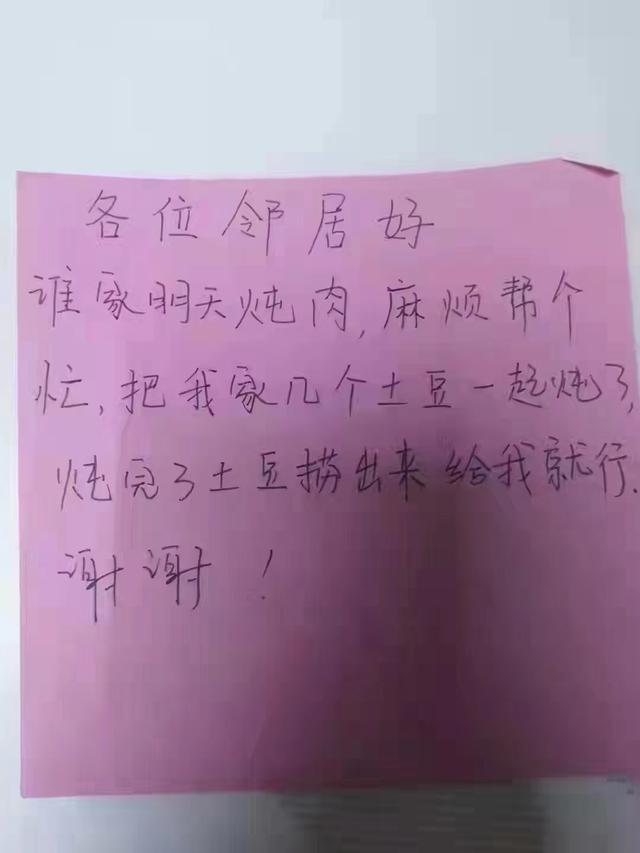 各位邻居好
谁家明天炖肉,麻烦帮个
忙,把我家几个土豆一起炖了,
炖完了土豆捞出来给我就行.
谢谢!